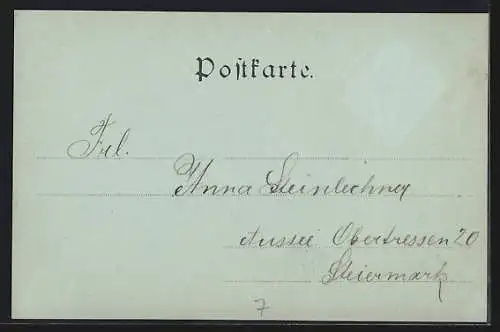 Postkarte.
Frl.
Anna Steinlechner
Aussee Obertressen 20
Steiermark
7